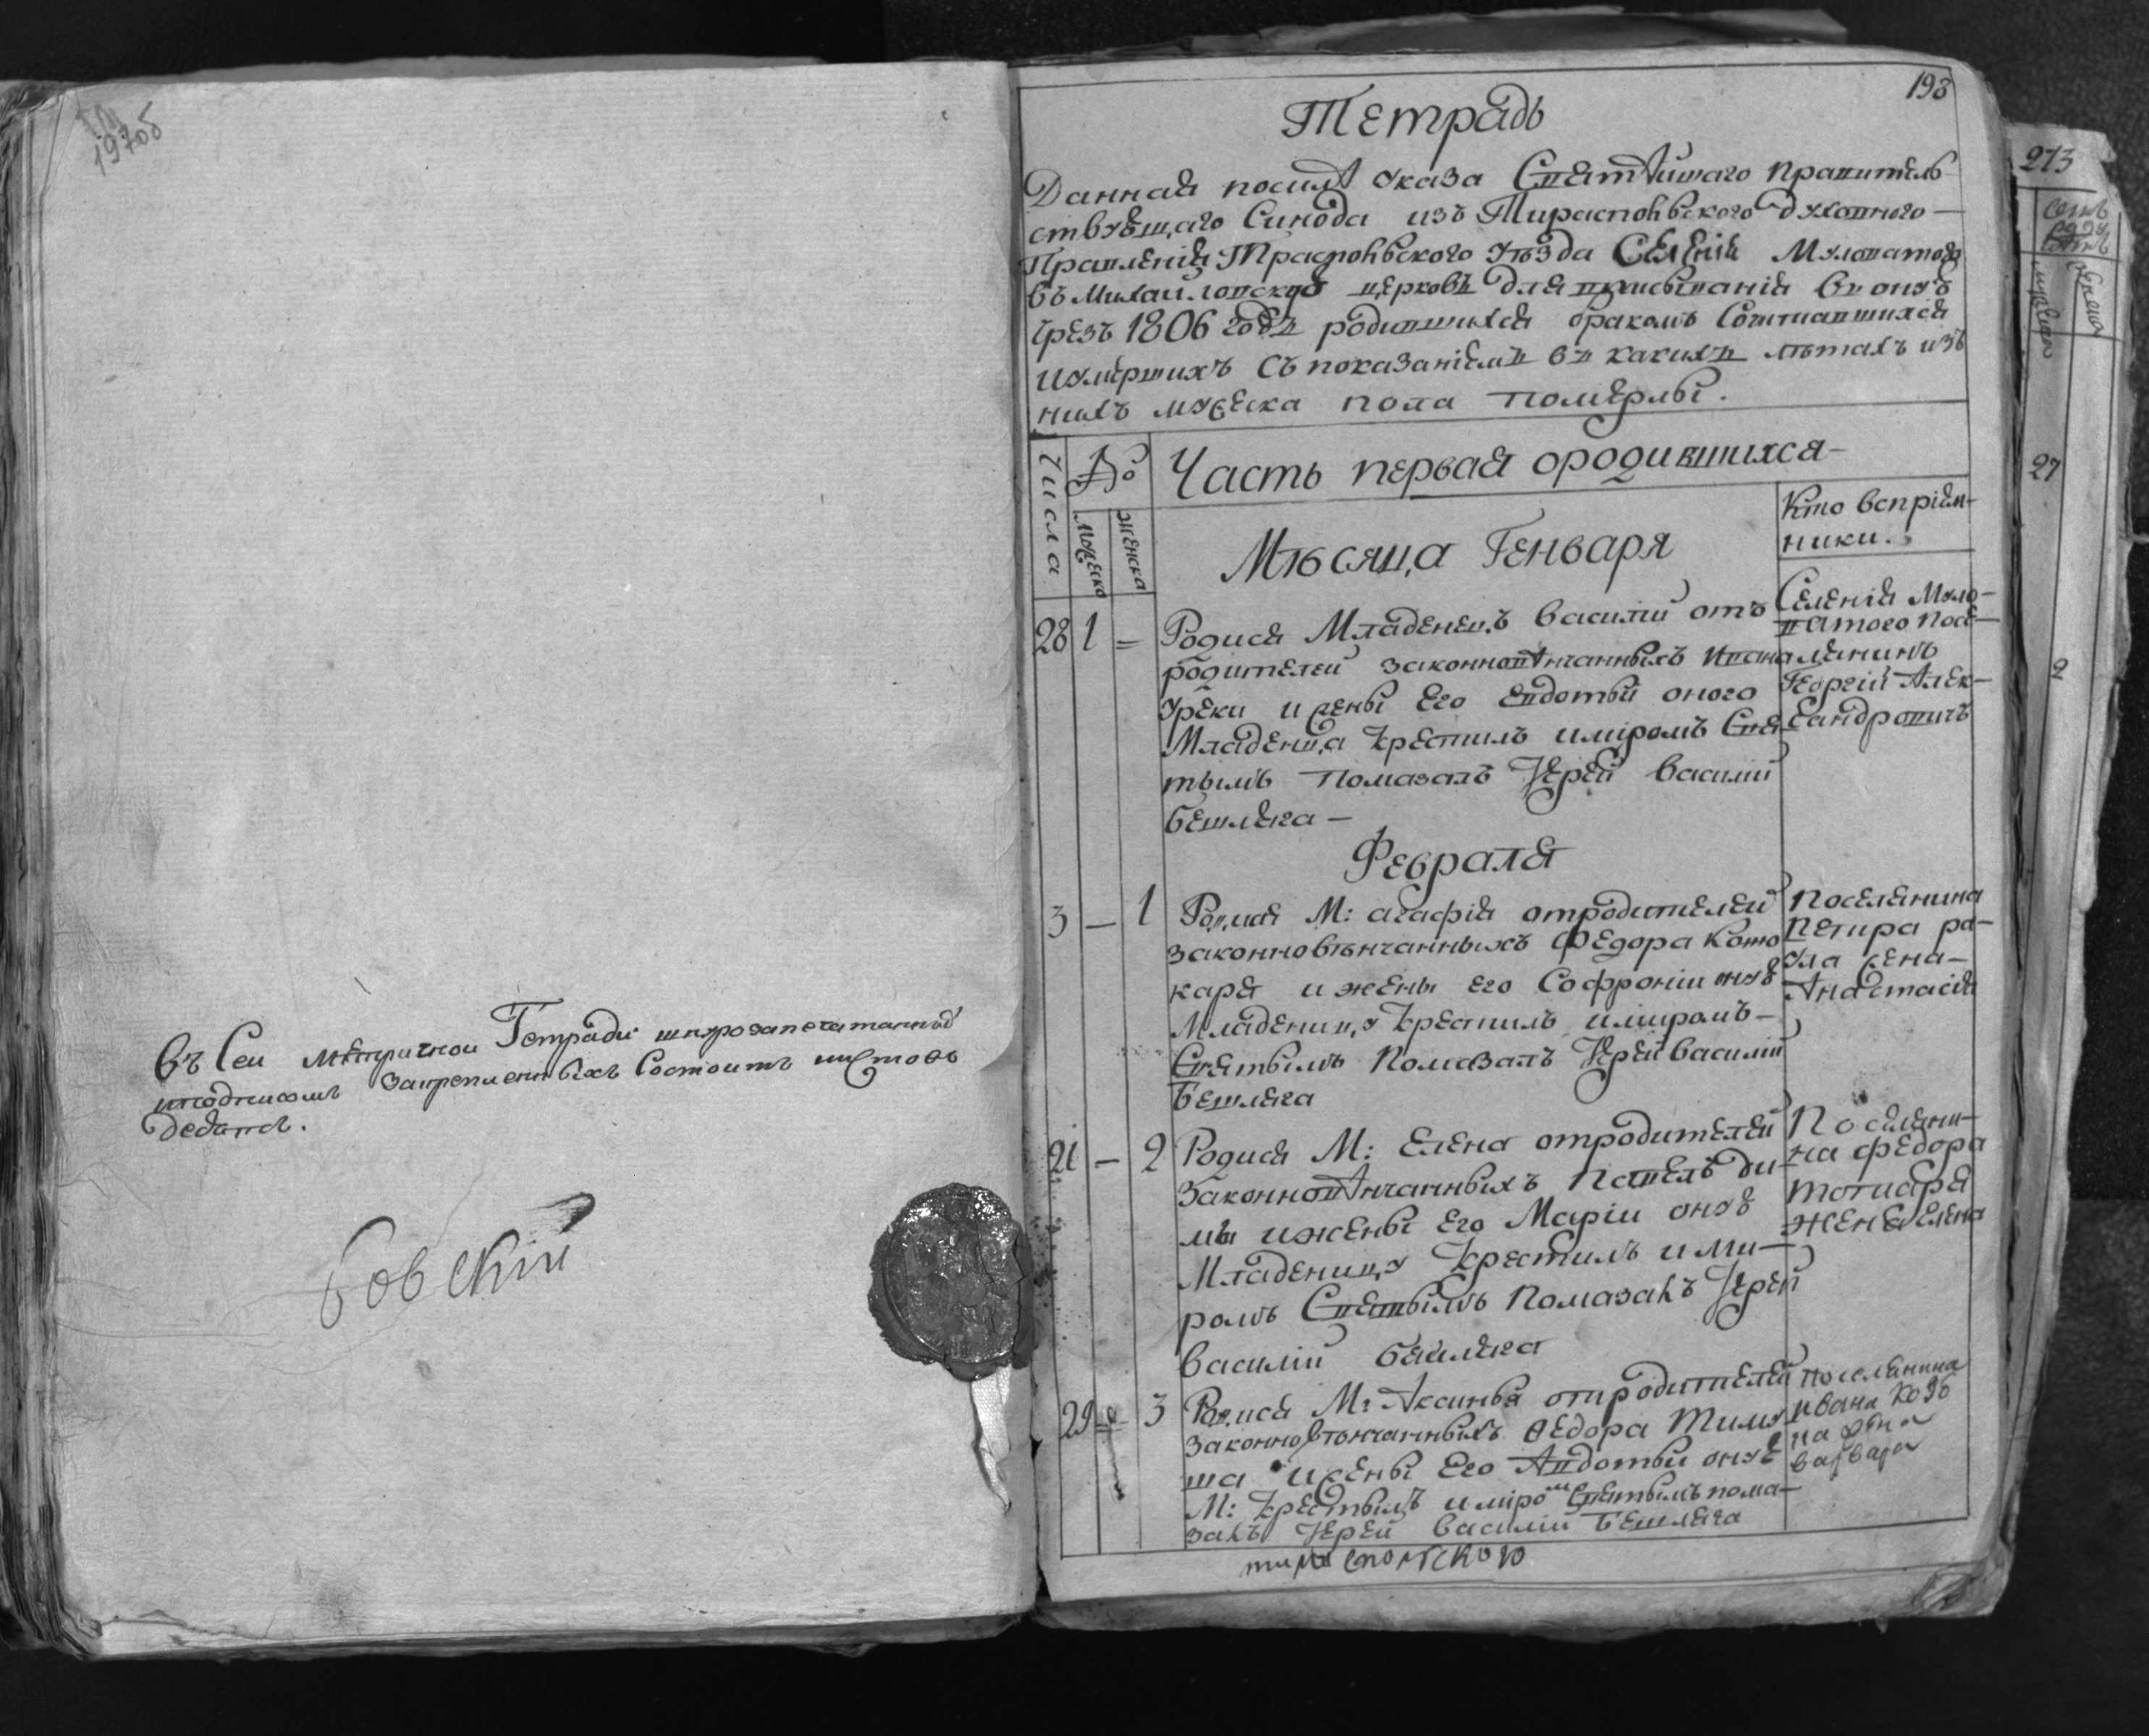 197об
Въ Сеи Метричнои Тетради шнурозапечатанныхъ
иподписомъ закрепленныхъ Состоитъ листовъ
девать.
бовскій
193
Тетрадь
Данная посилѣ Указа Святѣйшаго Правитель
ствующаго Синода изъ Тираспольского духовного
Правленія Траспольвского уѣзда Селенія Муловатого
въ Михайловскую церковъ для вписыванія въ оную
чрезъ 1806 годъ родившихся бракомъ Сочитавшихся
иумершихъ Съ показаніемъ въ какихъ лѣтахъ изъ
нихъ мужеска пола померлы.
Числа
№
Мужеска
Женска
Часть первая ородившихся
Кто воспріем-
ники.
Мѣсяца Генваря
28 1 = Родися Младенецъ Василій отъ
родителей законновѣнчанныхъ Ивана
Уреки ижены Его Евдотьи оного
Младенца Крестилъ иміромъ Свя
тымъ помазалъ Іерей Василій
Бешляга
Селенія Муло-
ватого посе-
лянинъ
Георгій Алек-
сандровичъ
Февраля
3 — 1 Родися М: агафія отродителей
законновѣнчанныхъ Федора Кото
каря и жены его Софроніи оную
Младеницу Крестилъ имиромъ
Святымъ Помазалъ Іерей Василій
Бешляга
Поселянина
Петра ра-
ула жена
Анастасія
21 — 2 Родися М: Елена отродителей
Законновѣнчанныхъ Павелъ ди-
мы ижены Его Маріи оную
Младеницу Крестилъ и ми-
ромъ Святымъ Помазалъ Іерей
Василій Бешляга
Поселяни-
на федора
тотиаря
жена Елена
29 3 Родися М: Аксинья отродителей
законновѣнчанныхъ Ѳедора Тиму
ша ижены Его Авдотьи оную
М: Крестилъ иміромъ Святымъ пома-
залъ Іерей Василій Бешляга
Поселянина
ивана
варвара
273
27
2